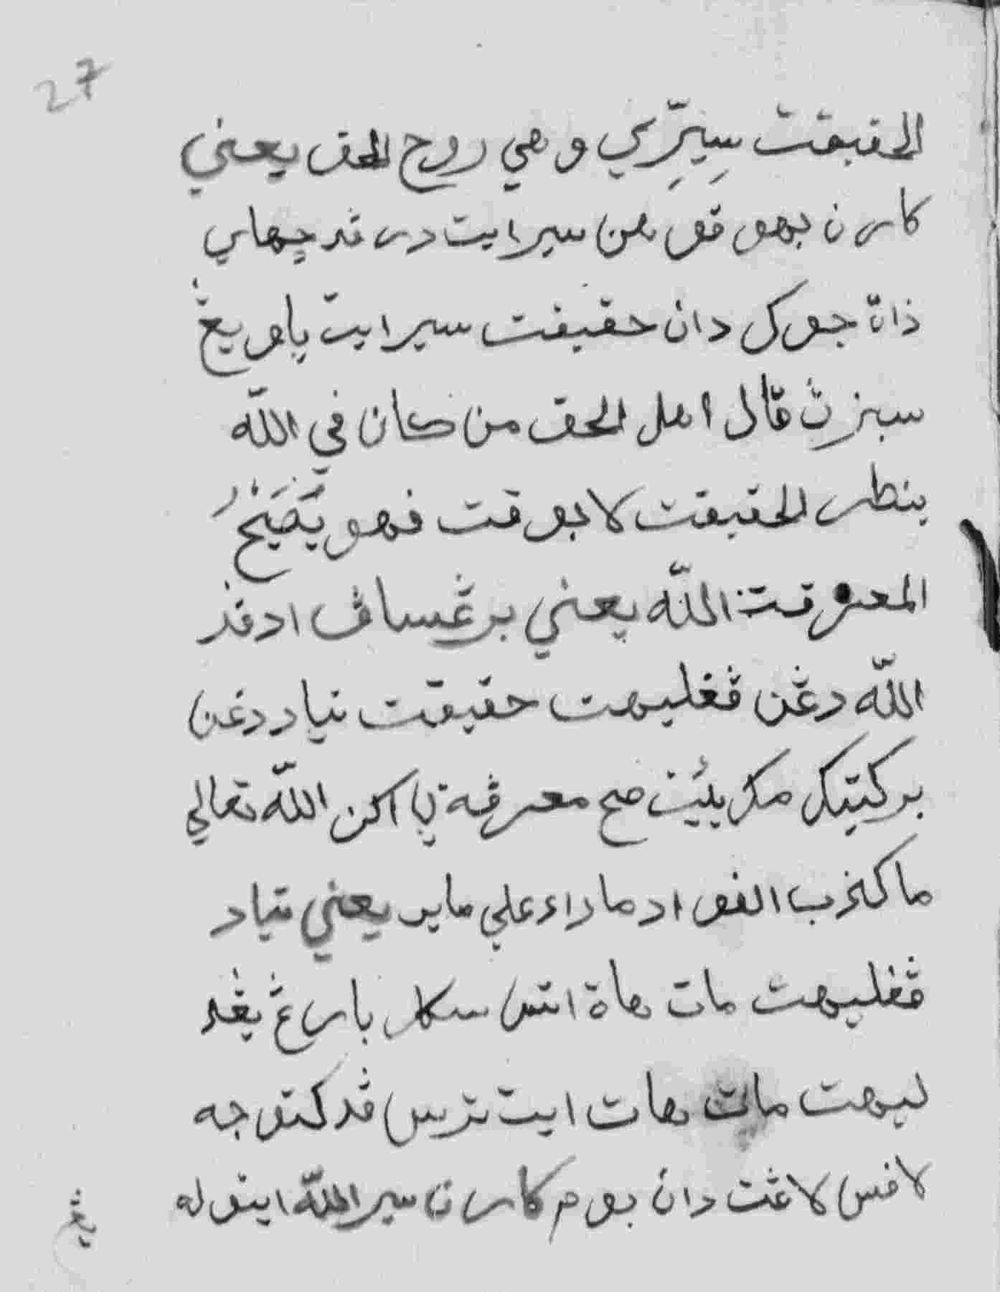 27
الحقيقت سِيرِّي وهي روح الحق يعني
كارن بهو قو هن سيرايت در ڤد چهاي
ذاة جوكل دان حقيقت سيرايت ياويغ
سبنرڽ قال اهل الحق من كان في الله
ينطر الحقيقت لا بوقت فهو يَصَيْحُ
المعرفت الله يعني برڠساڤ ادفذ
الله دڠن ڤڠليهت حقيقت تياد دڠن
بركتيكل مكر يئيت صح معرفة يا اكن الله تعالي
ما كذب الفواد ما راء علي ما ير يعني تياد
ڤڠليهت مات هاة اتس سكل بارڠ يڠد
ليهت مات هات ايت ترس ڤد كتوجه
لافس لاڠت دان بوم كارن سير الله ايتوله
يڠ